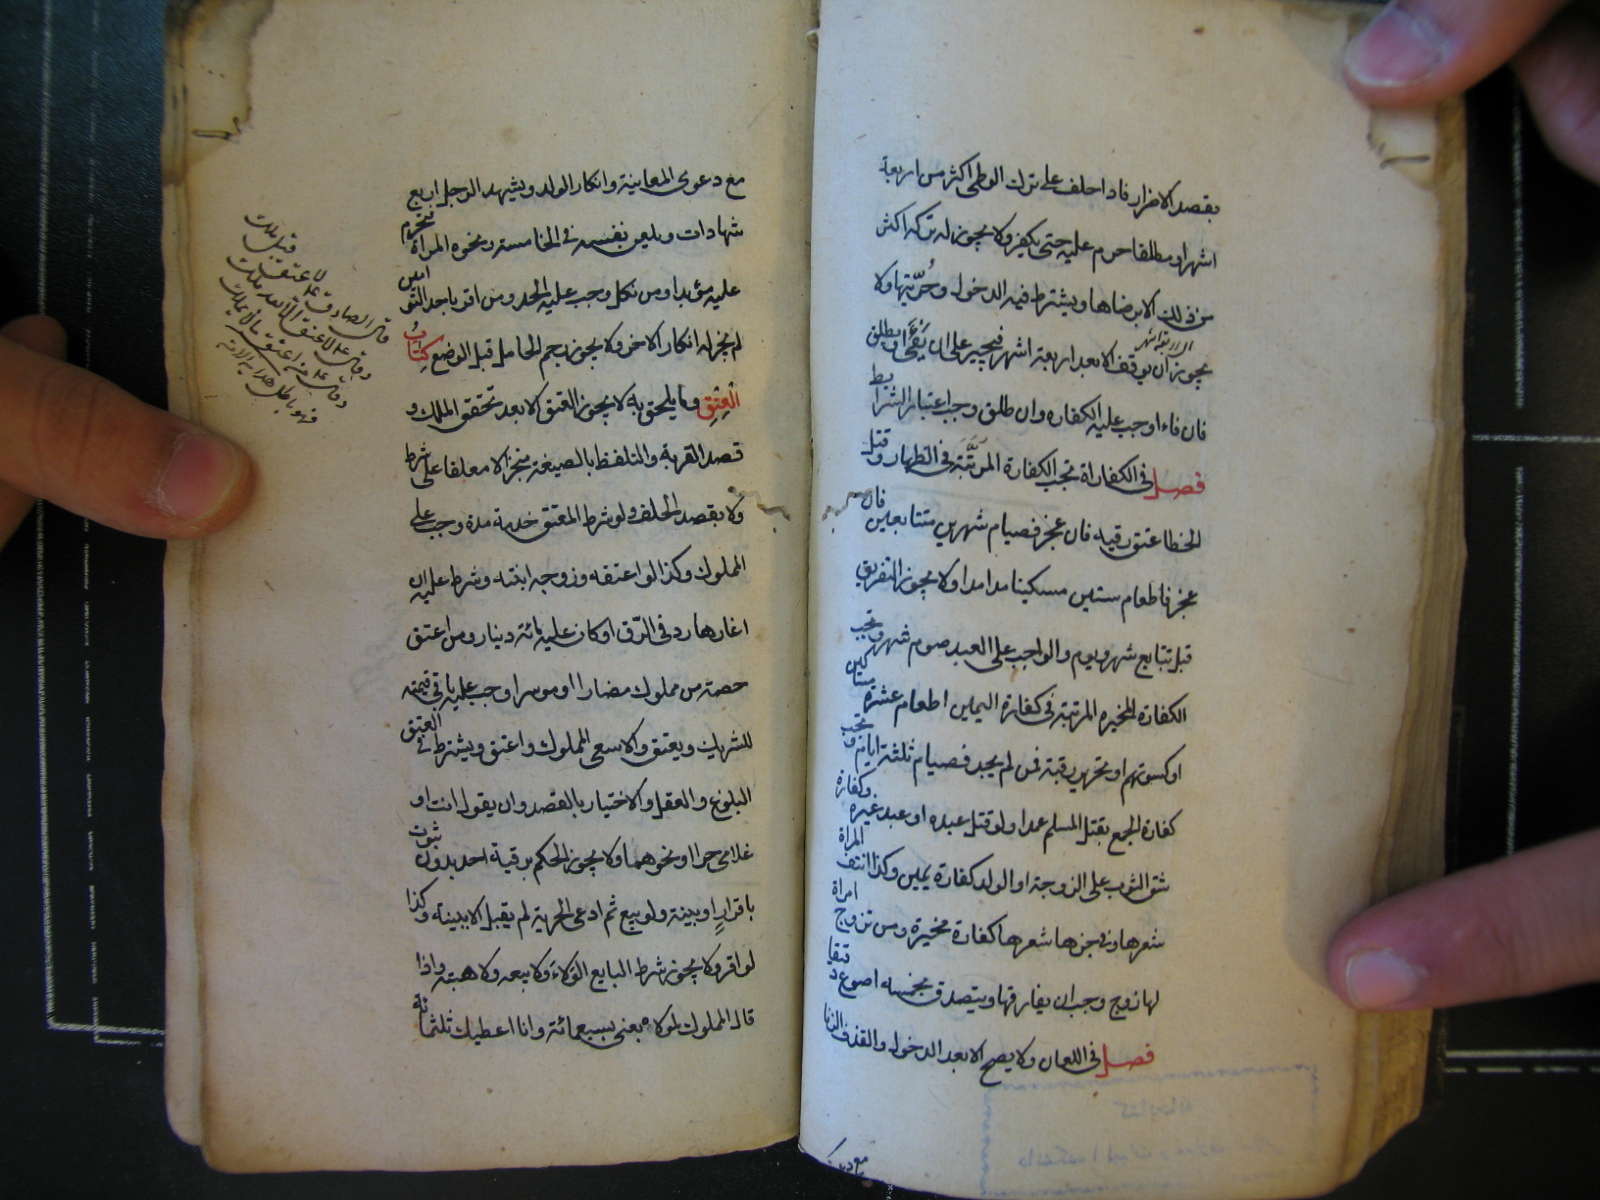 بقصد الاضرار فاذا حلف على ترك الوطى اكثر من اربعة
اشهر او مطلقا حرم عليه حتى يكفر ولا يجوز له تركه اكثر
من ذلك الا برضاها ويشترط فيه الدخول وحريتها ولا
يجوز ان يوقف الا بعد اربعة اشهر فيجبر على ان يفئ او يطلق
فان فاء اوجب عليه الكفاره وان طلق وجب اعتبار الشرايط
فصل فى الكفاراة تجب الكفارة المرتبة فى الظهار وقتل
الخطا عتق رقبه فان عجز فصيام شهرين متتابعين فان
عجز فاطعام ستين مسكينا مدا مدا ولا يجوز التفريق
قبل تتابع شهر ويوم والواجب على العبد صوم شهر وتجب
الكفارة المخيره المرتبة فى كفارة اليمين اطعام عشرة مساكين
او كسوتهم او تحرير رقبة فمن لم يجد فصيام ثلثة ايام وتجب
كفارة الجمع بقتل المسلم عمدا ولو قتل عبده او عبد غيره وكفارة
شق الثوب على الزوجة او الولد كفارة يمين وكذا انتف المراة
شعرها وفى جزها شعرها كفارة مخيرة ومن تزوج امراة
لها زوج وجب ان يفارقها ويتصدق بخمسه اصوع دقيقا
فصل فى اللعان ولا يصح الا بعد الدخول والقذف الزنا
مع دعوى
مع دعوى المعاينة وانكار الولد ويشهد الرجل اربع
شهادات ويلعن نفسه فى الخامسة ونحوه المراة فتحرم
عليه مؤبدا ومن نكل وجب عليه الحد ومن اقر باحد التوامين
لم يجز له انكار الاخر ولا يجوز رجم الحامل قبل الوضع كتاب
العتق وما يلحق به لا يجوز العتق الا بعد تحقق الملك و
قصد القربة والتلفظ بالصيغة منجزا لا معلقا على شرط
ولا بقصد الحلف ولو شرط المعتق خدمة مدة وجب على
المملوك وكذا لو اعتقه وزوجه ابنته وشرط عليه ان
اغارها رد فى الرق او كان عليه مائة دينار ومن اعتق
حصته من مملوك مضارا او موسرا وجب عليه باقى قيمته
للشريك ويعتق والا سعى المملوك واعتق ويشترط فى العتق
البلوغ والعقل والاختيار بالقصد وان يقول انت او
غلامى حرا او نحوهما ولا يجوز الحكم برقية احد بدون ثبوت
باقرار او بينة ولو بيع ثم ادعى الحرية لم يقبل الا ببينة وكذا
لو اقر ولا يجوز شرط البايع الولاء ولا بيعه ولا هبته واذا
قال المملوك لمولاه بعنى بسبعمائة وانا اعطيك ثلثمائة
قال الصادق ع لا عتق قبل ملك
وقال ع لا عتق الا بعد ملك
وقال ع من اعتق ما لا يملك
فهو باطل